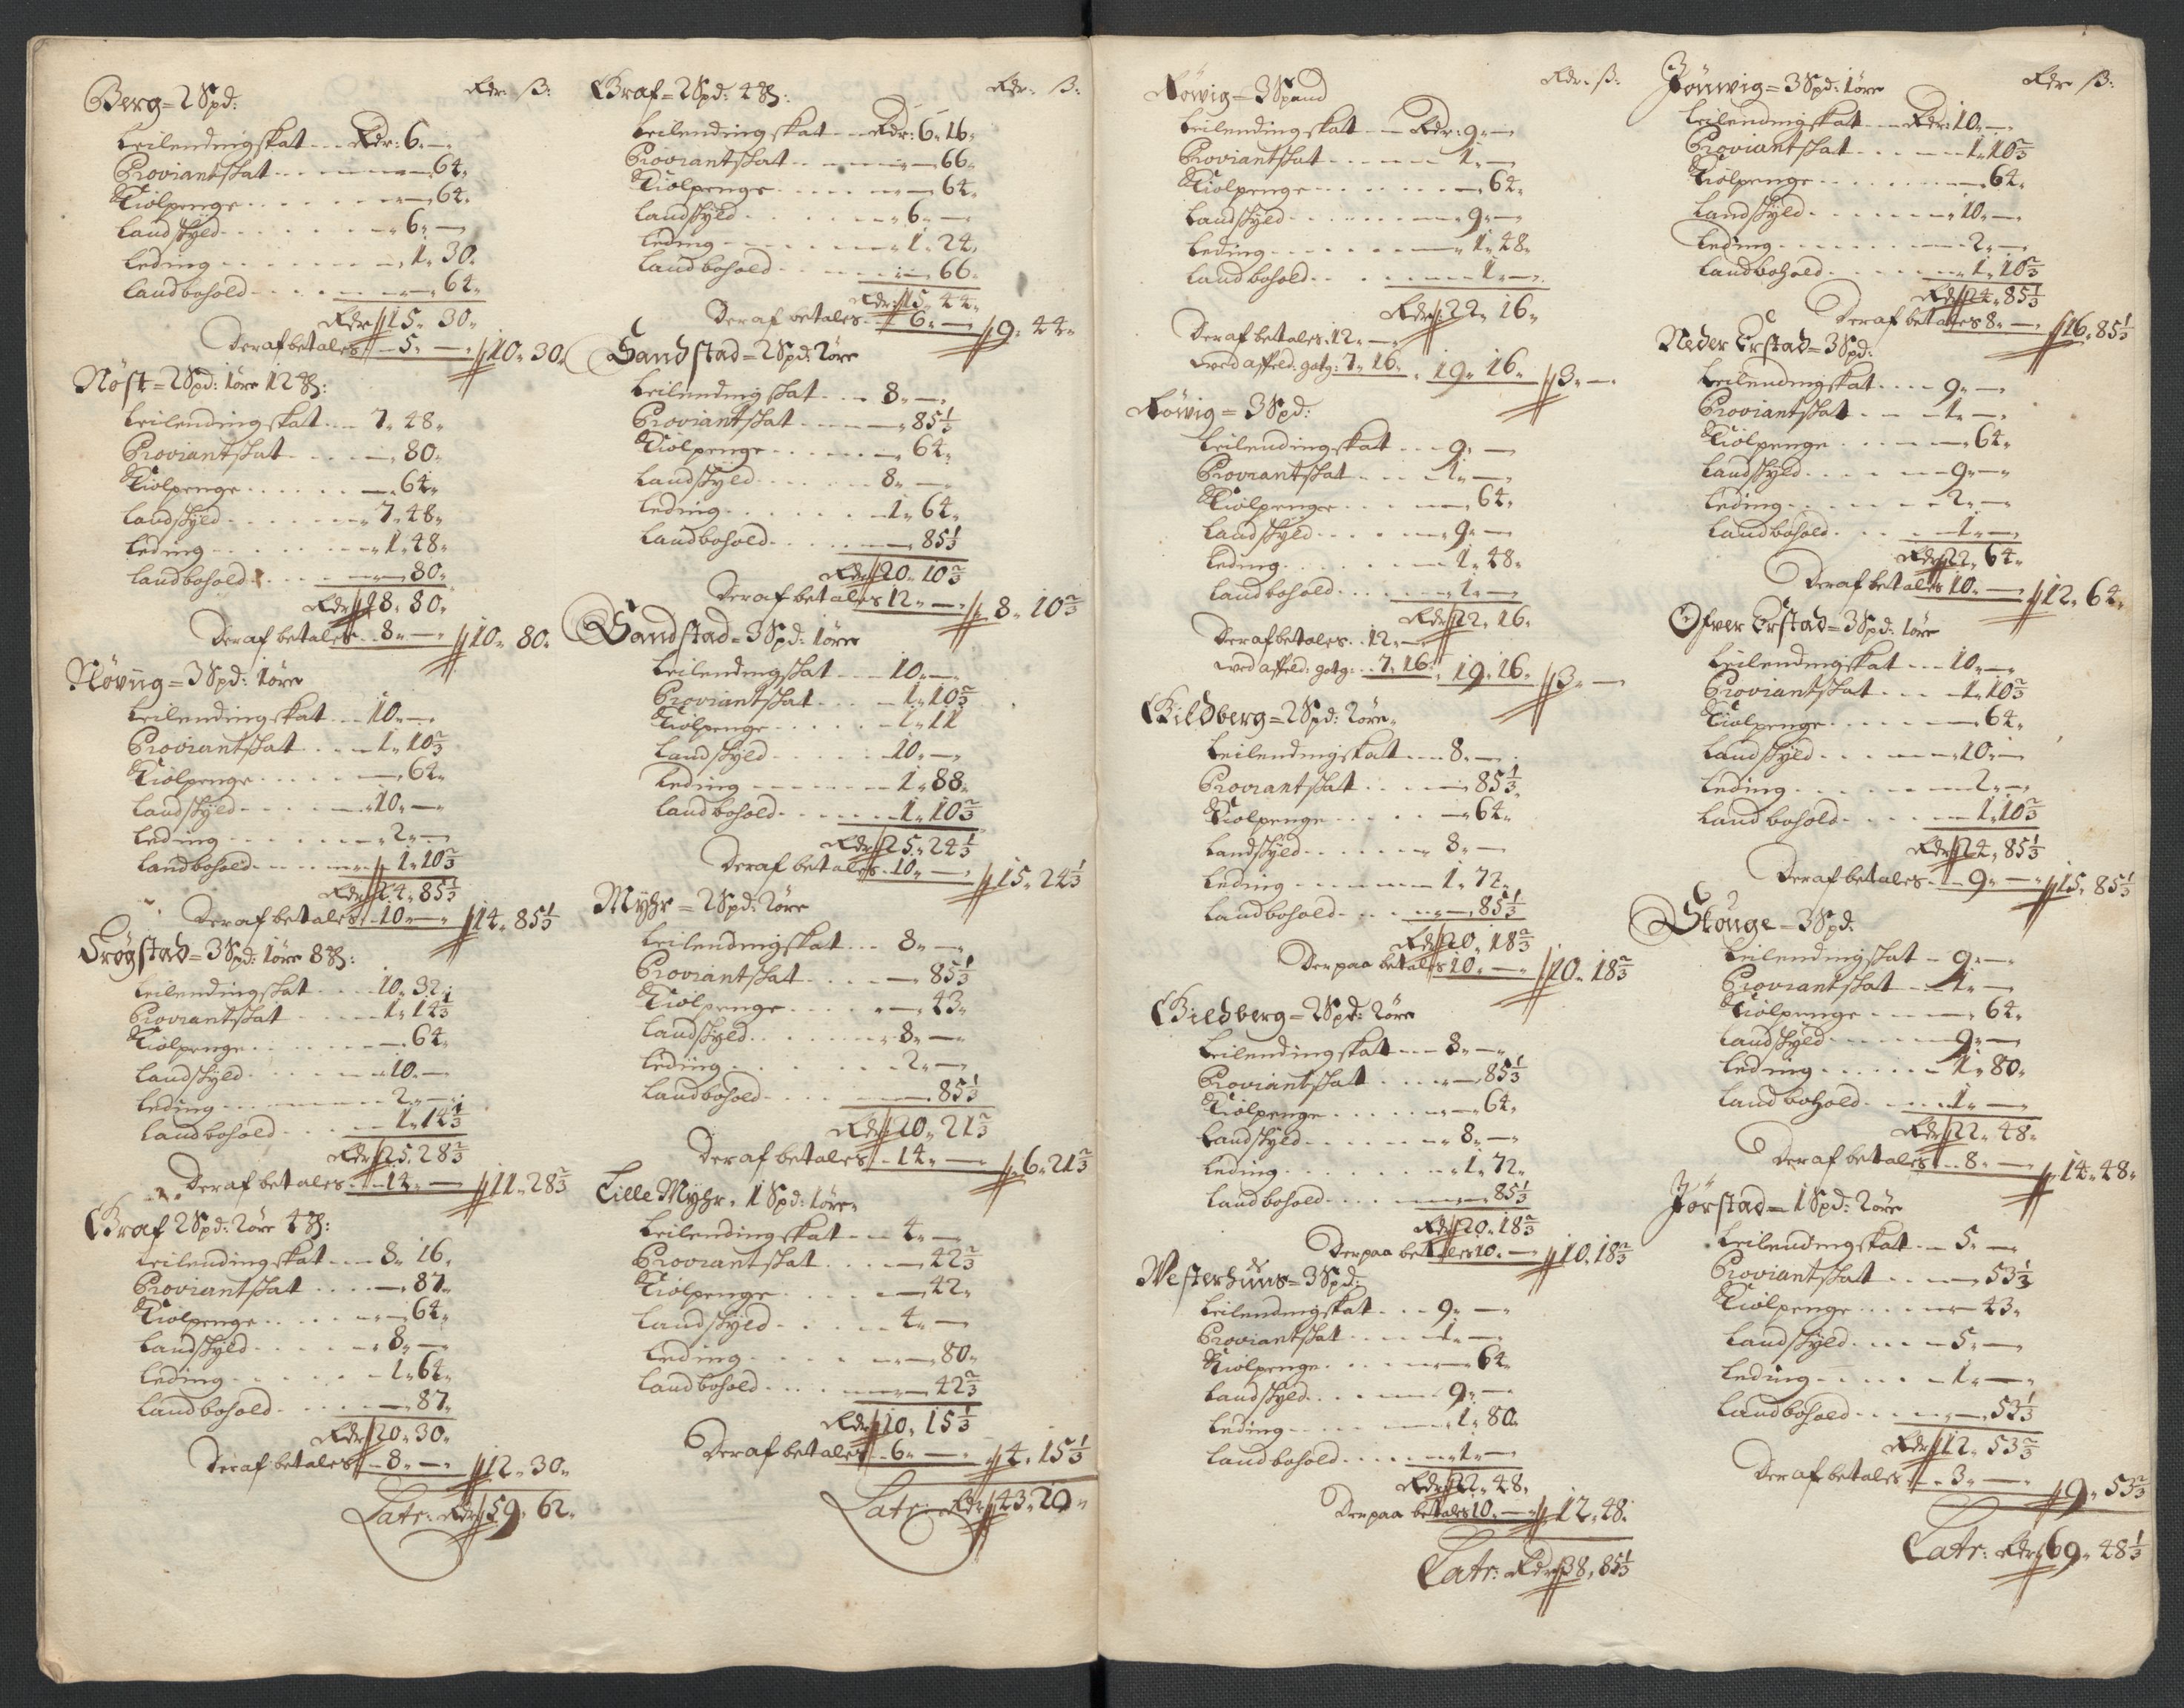 Berg = 2 Spd: Rdr ß:
Leilendingskat - - Rdr: 6 „ —
Proviantskat - - - — 64 „
Kiolpenge - - - - — 64 „
Landskyld - - - - „ 6 „ —
Leding - - - - „ 1 „ 30 „
Landbohold - - - - — 64 „
Rdr 15 „ 30 „
Deraf betales - 5 „ — 10 „ 30 „
Nöst = 2 Spd: 1 öre 12 ℔:
Leilendingskat - - 7 „ 48 „
Proviantskat - - - — 80 „
Kiolpenge - - - - — 64 „
Landskyld - - - - „ 7 „ 48 „
Leding - - - - „ 1 „ 48 „
Landbohold - - - - — 80 „
Rdr 18 „ 80 „
Deraf betales - - 8 „ — 10 „ 80 „
Növug = 3 Spd: 1 öre
Leilendingskat - - 10 „ —
Proviantskat - - - 1 „ 10⅔
Kiolpenge - - - - — 64 „
Landskyld - - - - 10 „ —
Leding - - - - „ 2 „ —
Landbohold - - - - 1 „ 10⅔
Rdr 24 „ 85⅓
Deraf betales - 10 „ — 14 „ 85⅓
Frögstad = 3 Spd: 1 öre 8 ℔:
Leilendingskat - - - 10 „ 32 „
Proviantskat - - - - 1 „ 14⅓
Kiolpenge - - - - — 64 „
Landskyld - - - - „ 10 „ —
Leding - - - - 2 „ —
Landbohold - - - - 1 „ 14⅓
Rdr 25 „ 28⅔
Deraf betales - - 14 „ — 11 „ 28⅔
Graf 2 Spd: 2 öre 4 ℔:
Leilendingskat - - - 8 „ 16 „
Proviantskat - - - — 87 „
Kiolpenge - - - - — 64 „
Landskyld - - - - „ 8 „ —
Leding - - - - 1 „ 64 „
Landbohold - - - - — 87 „
Rdr 20 „ 30 „
Deraf betales - 8 „ — 12 „ 30 „
Latr: Rdr 59 „ 62 „
Graf = 2 Spd: 4 ℔: Rdr: ß:
Leilendingskat - - Rdr: 6 „ 16 „
Proviantskat - - - — 66 „
Kiolpenge - - - - — 64 „
Landskyld - - - - „ 6 „ —
Leding - - - - „ 1 „ 24 „
Landbohold - - - - — 66 „
Rdr: 15 „ 44 „
Deraf betales - 6 „ — 9 „ 44 „
Sandstad = 2 Spd: 2 öre
Leilendingskat - - - 8 „ —
Proviantskat - - - — 85⅓
Kiolpenge - - - - — 64 „
Landskyld - - - - 8 „ —
Leding - - - - 1 „ 64 „
Landbohold - - - - — 85⅓
Rdr 20 „ 10⅔
Deraf betales 12 „ — 8 „ 10⅔
Sandstad = 3 Spd: 1 öre
Leilendingskat - - - 10 „ —
Proviantskat - - - 1 „ 10⅔
Kiolpenge - - - - 1 „ 11
Landskyld - - - - 10 „ —
Leding - - - - 1 „ 88 „
Landbohold - - - - 1 „ 10⅔
Rdr 25 „ 24⅓
Deraf betales - 10 „ — 15 „ 24⅓
Myhr = 2 Spd: 2 öre
Leilendingskat - - - 8 „ —
Proviantskat - - - — 85⅓
Kiolpenge - - - - — 43 „
Landskyld - - - - „ 8 „ —
Leding - - - - 2 „ —
Landbohold - - - - — 85⅓
Rdr 20 „ 21⅔
Deraf betales - 14 „ — 6 „ 21⅔
Lille Myhr „ 1 Spd: 1 öre „
Leilendingskat - - - 4 „ —
Proviantskat - - - — 42⅔
Kiolpenge - - - - — 42 „
Landskyld - - - - 4 „ —
Leding - - - - — 80 „
Landbohold - - - - — 42⅔
Rdr 10 „ 15⅓
Deraf betales - 6 „ — 4 „ 15⅓
Latr: Rdr 43 „ 20 „
Röwig = 3 Spand Rdr: ß:
Leilendingskat - - Rdr: 9 „ —
Proviantskat - - - - 1 „ —
Kiolpenge - - - - — 64 „
Landskyld - - - - 9 „ —
Leding - - - - 1 „ 48 „
Landbohold - - - - 1 „ —
Rdr 22 „ 16 „
Deraf betales „ 12 „ —
wed affeld: gotg: 7 „ 16 „ 19 „ 16 „ 3 „ —
Röwig = 3 Spd:
Leilendingskat - - - 9 „ —
Proviantskat - - - 1 „ —
Kiolpenge - - - - — 64 „
Landskyld - - - - 9 „ —
Leding - - - - 1 „ 48 „
Landbohold - - - - 1 „ —
Rdr 22 „ 16 „
Deraf betales - - 12 „ —
wed affeld: gotg: - 7 „ 16 „ 19 „ 16 „ 3 „ —
Gildberg = 2 Spd: 2 öre „
Leilendingskat - - - 8 „ —
Proviantskat - - - — 85⅓
Kiolpenge - - - - — 64 „
Landskyld - - - - 8 „ —
Leding - - - - 1 „ 72 „
Landbohold - - - - — 85⅓
Rdr 20 „ 18⅔
Der paa betales 10 „ — 10 „ 18⅔
Gildberg = 2 Spd: 2 öre
Leilendingskat - - - 8 „ —
Proviantskat - - - — 85⅓
Kiolpenge - - - - — 64 „
Landskyld - - - - „ 8 „ —
Leding - - - - 1 „ 72 „
Landbohold - - - - — 85⅓
Rdr 20 „ 18⅔
Der paa betales 10 „ — 10 „ 18⅔
Westerhuus = 3 Spd:
Leilendingskat - - - 9 „ —
Proviantskat - - - 1 „ —
Kiolpenge - - - - — 64 „
Landskyld - - - - 9 „ —
Leding - - - - 1 „ 80 „
Landbohold - - - - 1 „ —
Rdr 22 „ 48 „
Der paa betales 10 „ — 12 „ 48 „
Latr: Rdr 38 „ 85⅓
Jönwig = 3 Spd: 1 öre Rdr ß:
Leilendingskat - - Rdr: 10 „ —
Proviantskat - - - 1 „ 10⅔
Kiolpenge - - - - — 64 „
Landskyld - - - - 10 „ —
Leding - - - - 2 „ —
Landbohold - - - - 1 „ 10⅔
Rdr 24 „ 85⅓
Deraf betales 8 „ — 16 „ 85⅓
Neder Erstad = 3 Spd:
Leilendingskat - - - 9 „ —
Proviantskat - - - 1 „ —
Kiolpenge - - - - — 64 „
Landskyld - - - - 9 „ —
Leding - - - - 2 „ —
Landbohold - - - - 1 „ —
Rdr 22 „ 64 „
Deraf betales 10 „ — 12 „ 64 „
Ofver Erstad = 3 Spd: 1 öre
Leilendingskat - - - 10 „ —
Proviantskat - - - 1 „ 10⅔
Kiolpenge - - - - — 64 „
Landskyld - - - - 10 „ —
Leding - - - - 2 „ —
Landbohold - - - - 1 „ 10⅔
Rdr 24 „ 85⅓
Deraf betales - - 9 „ — 15 „ 85⅓
Skouge = 3 Spd:
Leilendingskat - 9 „ —
Proviantskat - - 1 „ —
Kiolpenge - - - - — 64 „
Landskyld - - - - 9 „ —
Leding - - - - 1 „ 80 „
Landbohold - - - - 1 „ —
Rdr 22 „ 48 „
Deraf betales - - 8 „ — 14 „ 48 „
Jörstad = 1 Spd: 2 öre
Leilendingskat - - 5 „ —
Proviantskat - - - — 53⅓
Kiolpenge - - - - — 43 „
Landskyld - - - - 5 „ —
Leding - - - - 1 „ —
Landbohold - - - - — 53⅓
Rdr 12 „ 53⅔
Deraf betales - - 3 „ — 9 „ 53⅔
Latr: Rdr 69 „ 48⅓